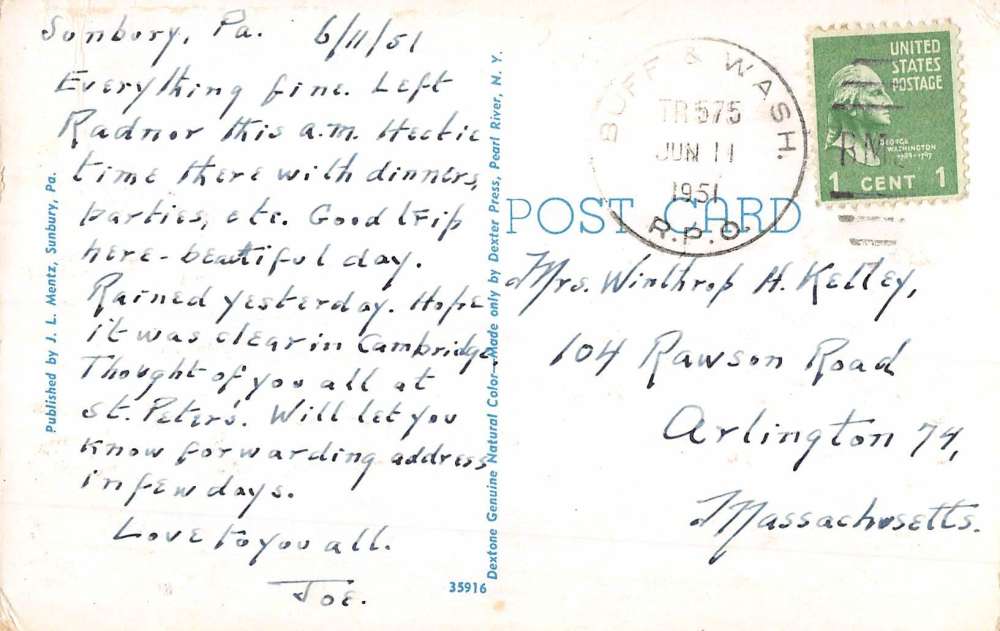 Sunbury, Pa. 6/11/51
Everything fine. Left
Radnor this a.m. Hectic
time there with dinners,
parties, etc. Good trip
here - beautiful day.
Rained yesterday. Hope
it was clear in Cambridge.
Thought of you all at
St. Peter's. Will let you
know forwarding address
in few days.
Love to you all.
Joe.
Published by J. L. Mentz, Sunbury, Pa.
Dextone Genuine Natural Color—Made only by Dexter Press, Pearl River, N. Y.
35916
BUFF & WASH.
TR 575
JUN 11
1951
R.P.O.
UNITED
STATES
POSTAGE
GEORGE
WASHINGTON
1789-1797
1 CENT 1
R.M.S.
POST CARD
Mrs. Winthrop H. Kelley,
104 Rawson Road
Arlington 74,
Massachusetts.